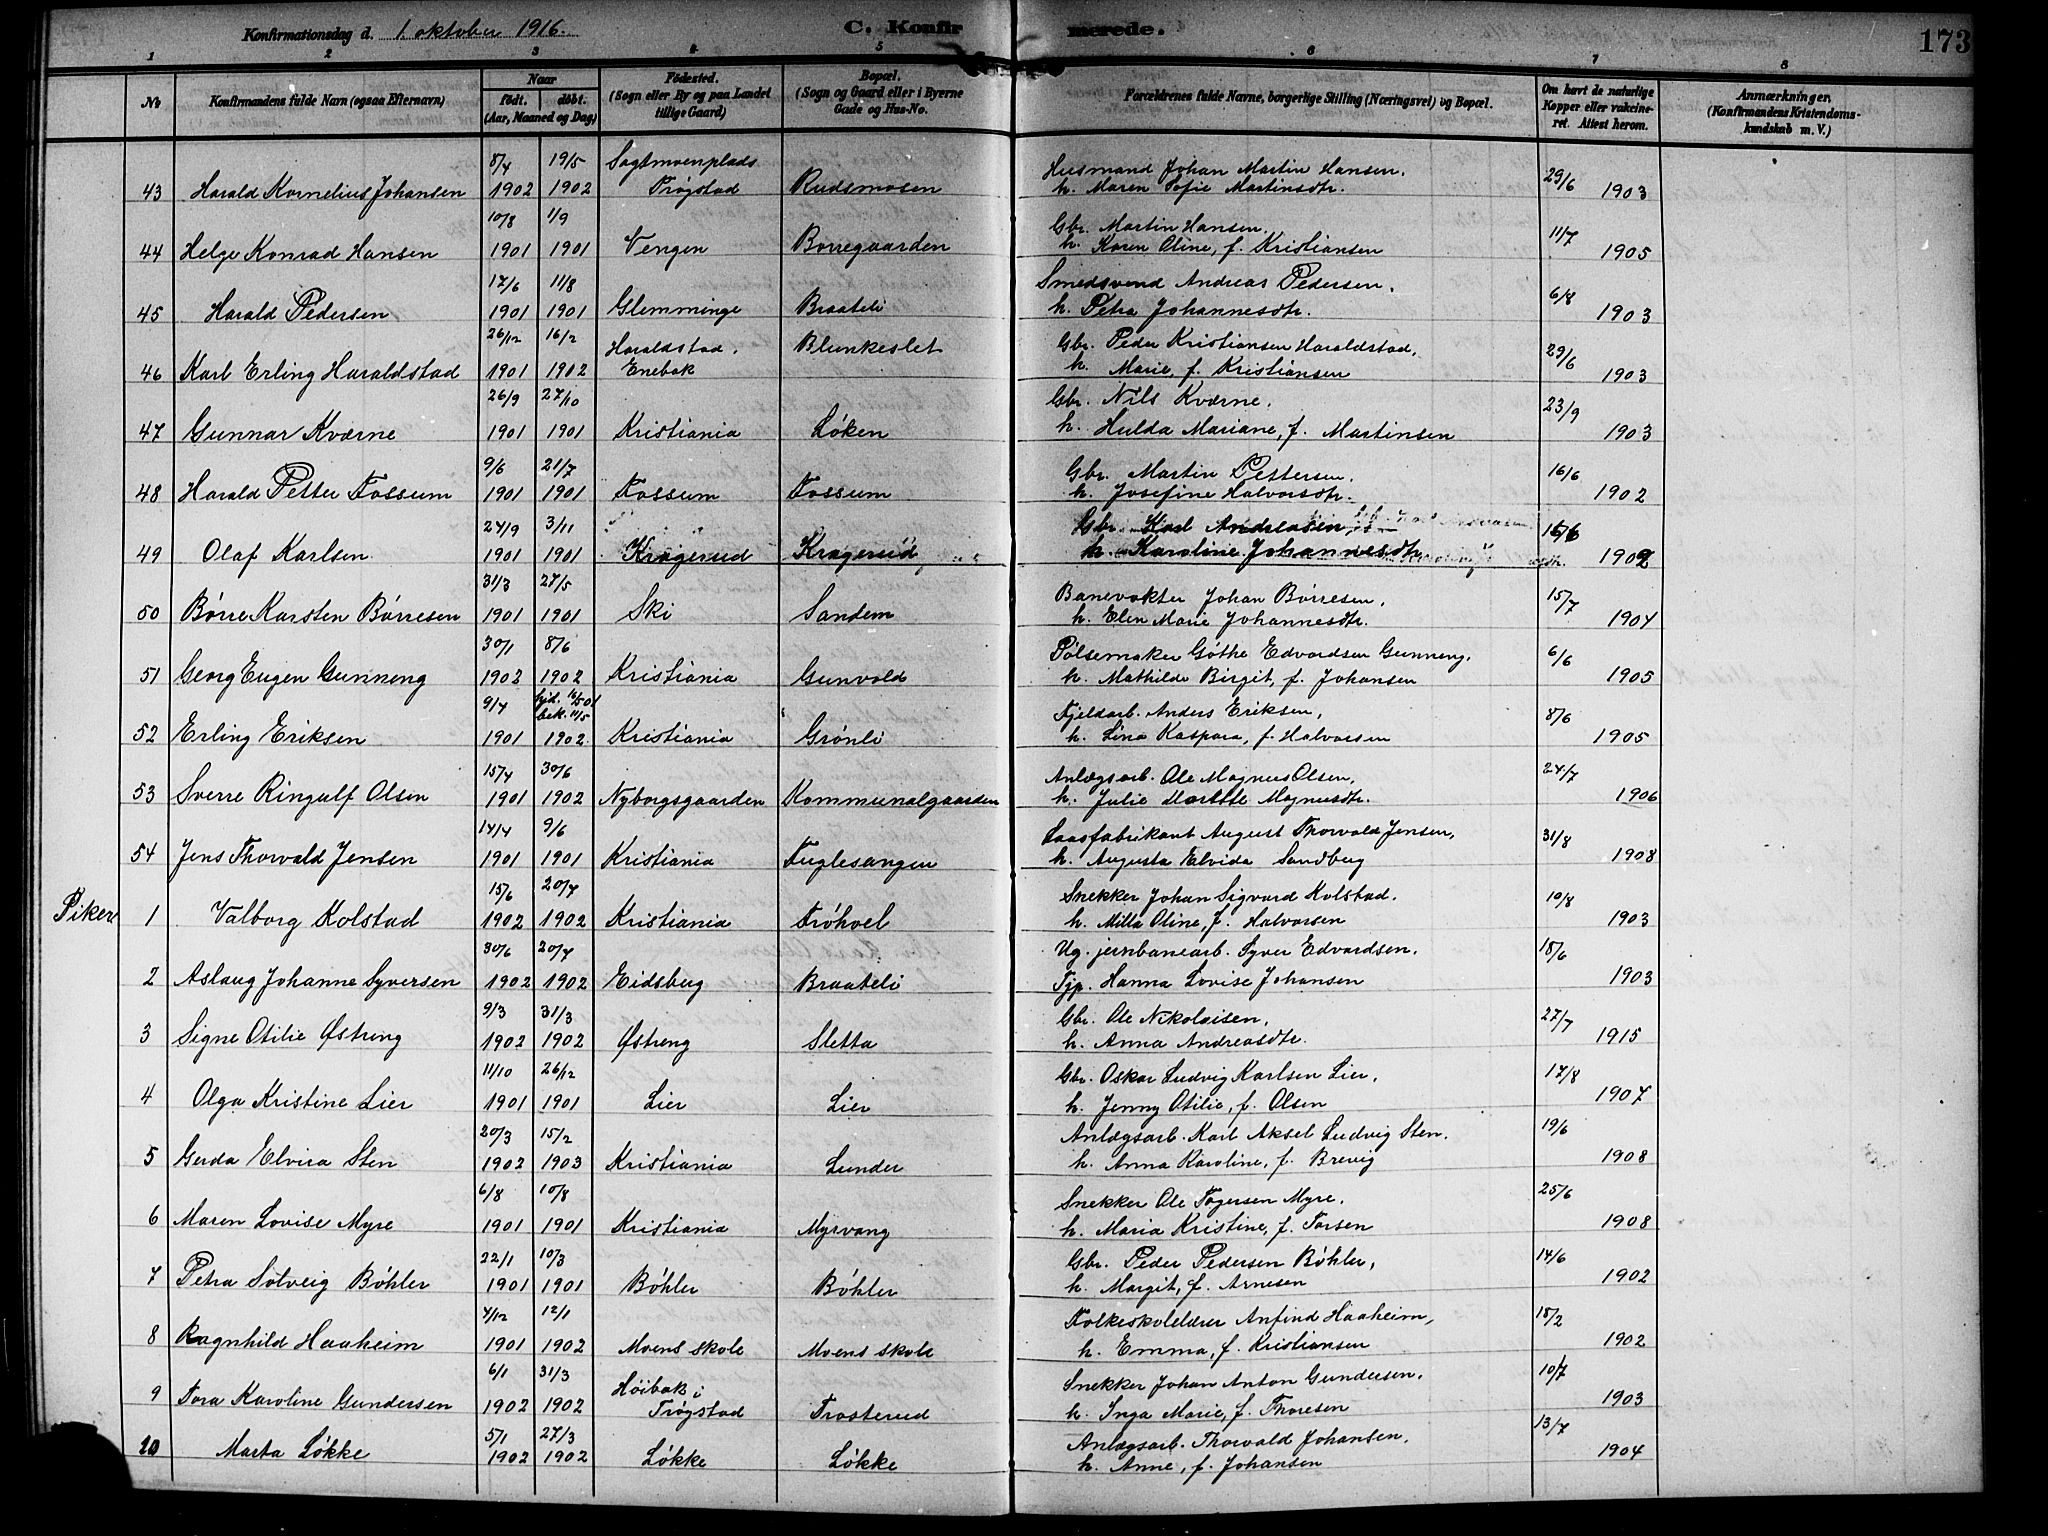 Konfirmationsdag d. 1. oktober 1916. C. Konfirmerede. 173
1 2 3 4 5 6 7 8
No Konfirmandens fulde Navn (ogsaa Efternavn) Naar födt. döbt. (Aar, Maaned og Dag) Födested. (Sogn eller By og paa Landet tillige Gaard) Bopæl. (Sogn og Gaard eller i Byerne Gade og Hus-No. Forældrenes fulde Navne, borgerlige Stilling (Næringsvei) og Bopæl. Om havt de naturlige Kopper eller vakcineret. Attest herom. Anmærkninger. (Konfirmandens Kristendomskundskab m. V.)
8/4 19/5 Sagtmoenplads Husmand Johan Martin Hansen. 29/6
43 Harald Kornelius Johansen 1902 1902 Trøgstad Rudsmosen h. Maren Sofie Martinsdtr. 1903
10/8 1/9 Gbr. Martin Hansen. 11/7
44 Helge Konrad Hansen 1901 1901 Vengen Borregaarden h. Karen Oline, f. Kristiansen 1905
17/6 11/8 Smedsvend Andreas Pedersen. 6/8
45 Harald Pedersen 1901 1901 Glemminge Braateli h. Petra Johannesdtr. 1903
26/12 16/2 Haraldstad, Blunkeslet Gbr. Peder Kristiansen Haraldstad, 29/6
46 Karl Erling Haraldstad 1901 1902 Enebak h. Marie, f. Kristiansen 1903
26/9 27/10 Gbr. Nils Kværne, 23/9
47 Gunnar Kværne 1901 1901 Kristiania Løken h. Hulda Mariane, f. Martinsen 1903
9/6 21/7 Gbr. Martin Pettersen, 16/6
48 Harald Petter Fossum 1901 1901 Fossum Fossum h. Josefine Halvorsdtr. 1902
24/9 3/11 Gbr. Karl Andreasen, 16/6
49 Olaf Karlsen 1901 1901 Kragerud Kragerud h. Karoline Johannesdtr. 1902
31/3 27/5 Banevokter Johan Børresen, 15/7
50 Børre Karsten Børresen 1901 1901 Ski Sandem h. Elen Marie Johannesdtr. 1904
30/1 8/6 Pølsemaker Gøthe Edvardsen Gunneng, 6/6
51 Georg Eugen Gunneng 1902 1902 Kristiania Gunvold h. Mathilde Birgit, f. Johansen 1905
9/4 hjd. 16/5 01 bek. 11/5 Fjeldarb. Anders Eriksen, 8/6
52 Erling Eriksen 1901 1902 Kristiania Grønli h. Lina Kaspara, f. Halvorsen 1905
15/4 30/6 Anlægsarb. Ole Magnus Olsen, 24/7
53 Sverre Ringulf Olsen 1901 1902 Nyborgsgaarden Kommunalgaarden h. Julie Marttte Magnusdtr. 1906
14/4 9/6 Laasfabrikant August Thorvald Jensen, 31/8
54 Jens Thorvald Jensen 1901 1901 Kristiania Fuglesangen h. Augusta Elvida Sandberg 1908
15/6 20/7 Snekker Johan Sigvard Kolstad. 10/8
Piker 1 Valborg Kolstad 1902 1902 Kristiania Frøhvel h. Milla Oline, f. Halvorsen 1903
30/6 20/7 Ug. jernbanearb. Syver Edvardsen. 18/6
2 Aslaug Johanne Syversen 1902 1902 Eidsberg Braateli Tjp. Hanna Lovise Johansen 1903
9/3 31/3 Gbr. Ole Nikolaisen, 27/7
3 Signe Otilie Østreng 1902 1902 Østreng Sletta h. Anna Andreasdtr. 1915
11/10 26/12 Gbr. Oskar Ludvig Karlsen Lier, 17/8
4 Olga Kristine Lier 1901 1901 Lier Lier h. Jenny Otilie, f. Olsen 1907
20/3 15/2 Anlægsarb. Karl Aksel Ludvig Sten. 19/6
5 Gerda Elvira Sten 1902 1903 Kristiania Lunder h. Anna Karoline, f. Brevig 1908
6/8 10/8 Snekker Ole Togersen Myre, 25/6
6 Maren Lovise Myre 1901 1901 Kristiania Myrvang h. Maria Kristine, f. Torsen 1908
22/1 10/3 Gbr. Peder Pedersen Bøhler, 14/6
7 Petra Solveig Bøhler 1901 1901 Bøhler Bøhler h. Margit, f. Arnesen 1902
4/12 12/1 Folkeskolelærer Anfind Haaheim, 18/2
8 Ragnhild Haaheim 1901 1902 Moens skole Moens skole h. Emma, f. Kristiansen 1902
6/1 31/3 Høibak i Snekker Johan Anton Gundersen. 10/7
9 Tora Karoline Gundersen 1902 1902 Trøgstad Trosterud h. Inga Marie, f. Thoresen 1903
5/1 27/3 Anlægsarb. Thorvald Johansen. 13/7
10 Marta Løkke 1902 1902 Løkke Løkke h. Anne, f. Johansen 1904